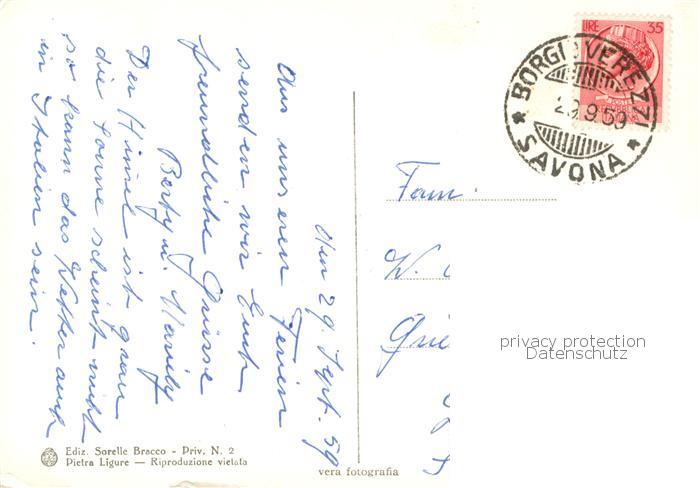 den 29 Sept. 59
Aus unseren Ferien
senden wir Euch
freundliche Grüsse
Der Himmel ist grau
die Sonne scheint nicht
so kann das Wetter auch
in Italien sein.
Fam.
W.
LIRE 35
BORGIO VEREZZI
29.9.59
SAVONA
privacy protection
Datenschutz
Ediz. Sorelle Bracco - Priv. N. 2
Pietra Ligure — Riproduzione vietata
vera fotografia